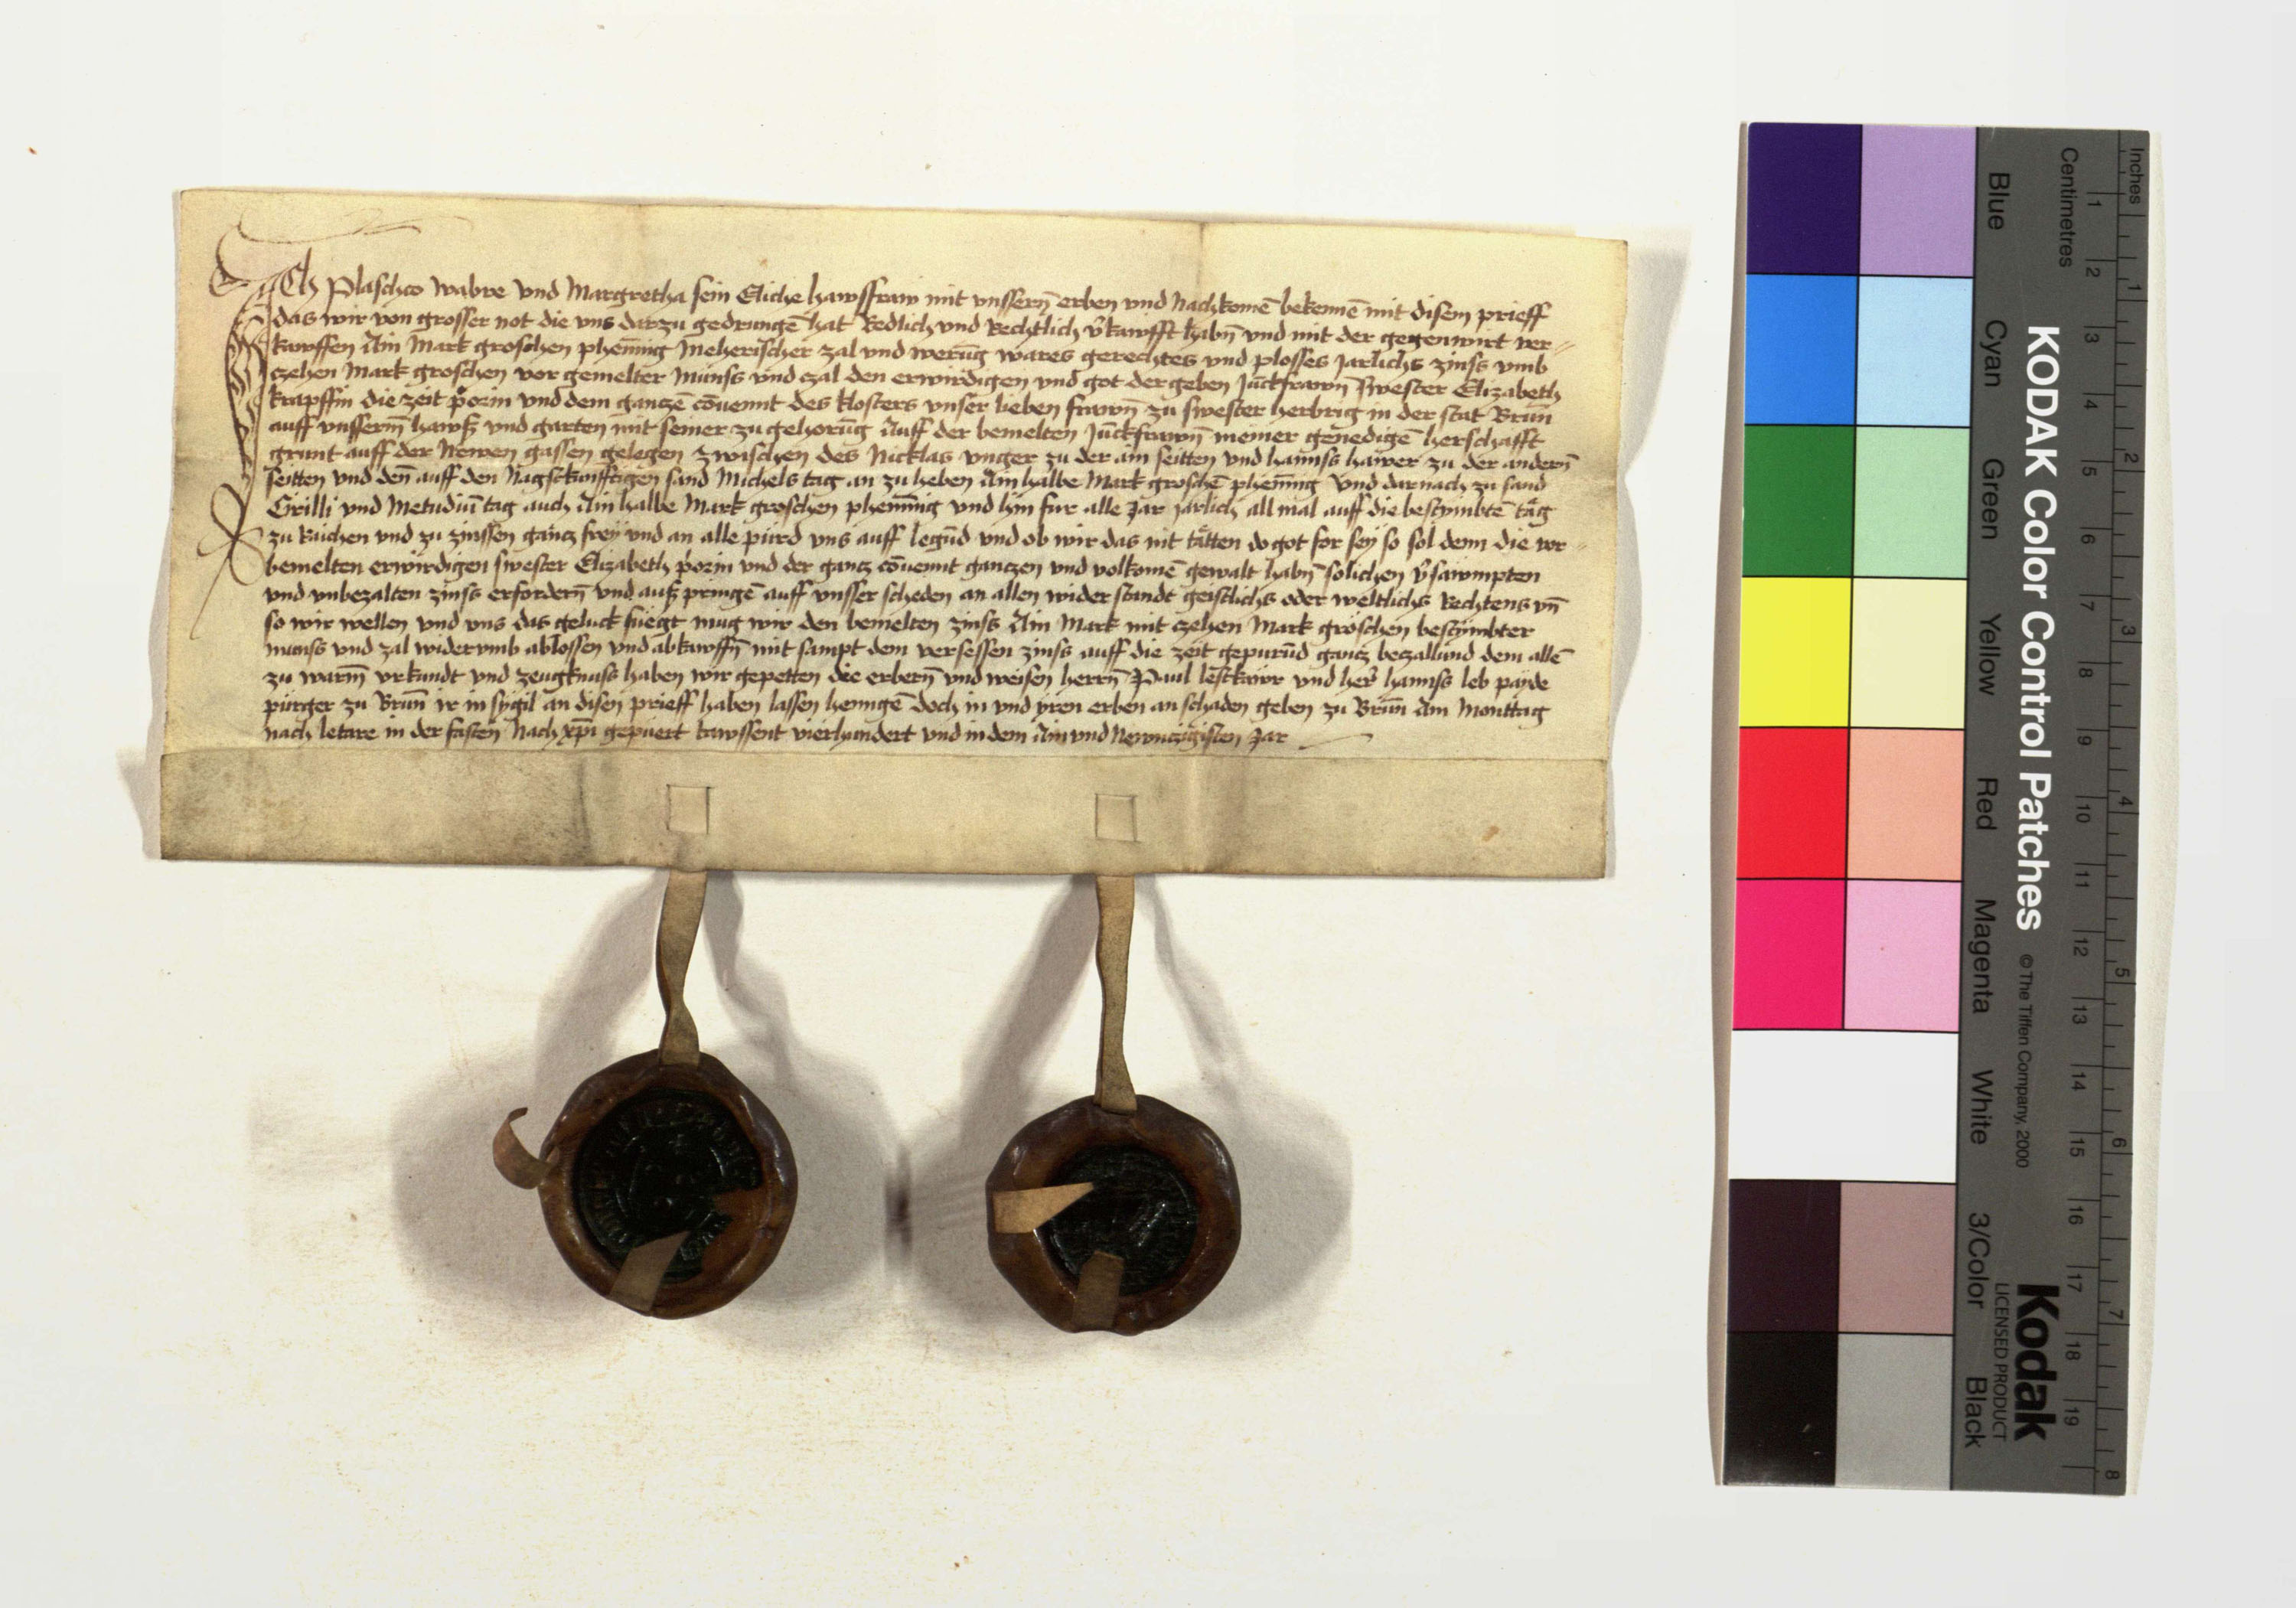 Ich Plaschco Wabre vnd Margretha sein Eliche hawsfraw mit vnssern̄ erben vnd Nachkomē bekennē mit disem prieff
das wir von grosser not die vns darzu gedrungē hat Redlich vnd Rechtlich v̄kawfft habn̄ vnd mit der gegenwirt ver-
kawffen Ain Mark groschen phennīg Meherischer zal vnd werūg wares gerechtes vnd plosses Jarlichs zinss vmb
czehen Mark groschen vor gemelter Münss vnd czal den erwirdigen vnd got dergeben Jūckfrawn̄ Swester Elizabeth
krapffin die zeit p̄orin vnd dem ganczē cōuennt des klosters vnser lieben frawn̄ zu swester herbrig in der stat Brün̄
auff vnsserm̄ hawß vnd garten mit seiner zu gehorūg Auff der bemelten Jūckfrawn̄ meiner genedigē herschafft
grunt auff der Newen gassen gelegen zwischen des Nicklas vnger zu der ain seitten vnd hannss hawer zu der andern̄
seitten vnd den̄ auff den Nagstkunfftigen sand Michels tag an zu heben Ain halbe Mark groschē phennīg Vnd darnach zu sand
Cirilli vnd Metudiū tag auch Ain halbe Mark groschen phennīg vnd hin fur alle Jar jarlich all mal auff die bestymbtē täg
zu Raichen vnd zu zinssen gancz frey vnd an alle pürd vns auff legūd vnd ob wir das nit tätten do got for sey so sol denn die vor-
bemelten erwirdigen swester Elizabeth p̄orin vnd der gancz cōuennt ganczen vnd volkomē gewalt habn̄ solichen v̄sawmpten
vnd vnbezalten zinss erfordern̄ vnd auß pringē auff vnsser scheden an allen wider standt geistlichs oder weltlichs Rechtens vn̄
so wir wellen vnd vns das geluck füegt mug wir den bemelten zinss Ain Mark mit czehen Mark gröschen bestymbter
munss vnd zal widervmb ablossen vnd abkawffn̄ mit sampt dem versessen zinss auff die zeit gepurūd gancz bezallund dem allē
zu warm̄ vrkundt vnd zeugknuss haben wir gepetten die erbern̄ vnd weisen herrn̄ Paul lestkawr vnd her̄ hannss leb payde
pürger zu Brün̄ ir in sygil an disen prieff haben lassen henngē doch in vnd yren erben an schaden geben zu Brün̄ Am Monttag
nach letare in der fasten Nach xp̄i gepuert tawssent vierhundert vnd in dem Ain vnd Newnczigisten Jar
KODAK Color Control Patches © The Tiffen Company, 2000 Kodak
LICENSED PRODUCT
Inches 1 2 3 4 5 6 7 8
Centimetres 1 2 3 4 5 6 7 8 9 10 11 12 13 14 15 16 17 18 19
Blue Cyan Green Yellow Red Magenta White 3/Color Black